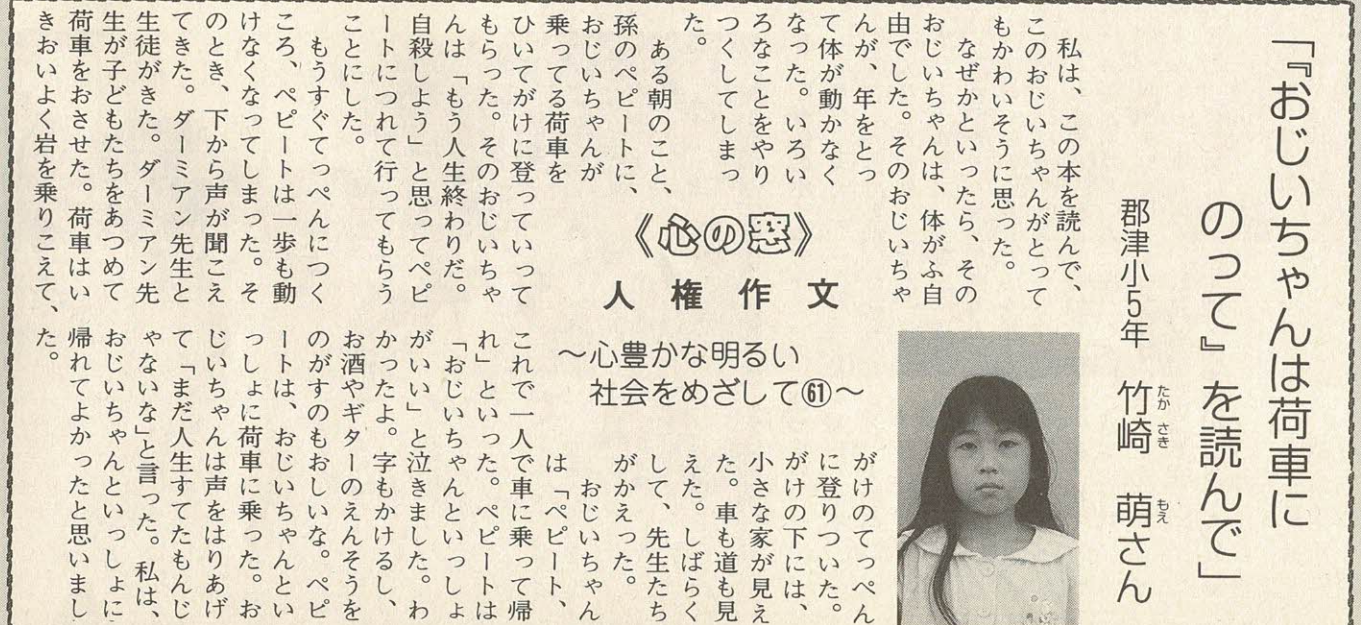 「『おじいちゃんは荷車に
のって』を読んで」
郡津小5年 竹崎 萌さん
たか さき もえ
私は、この本を読んで、
このおじいちゃんがとって
もかわいそうに思った。
なぜかといったら、その
おじいちゃんは、体がふ自
由でした。そのおじいちゃ
んが、年をとっ
て体が動かなく
なった。いろい
ろなことをやり
つくしてしまっ
た。
ある朝のこと、
孫のペピートに、
おじいちゃんが
乗ってる荷車を
ひいてがけに登っていって
もらった。そのおじいちゃ
んは「もう人生終わりだ。
自殺しよう」と思ってペピ
ートにつれて行ってもらう
ことにした。
もうすぐてっぺんにつく
ころ、ペピートは一歩も動
けなくなってしまった。そ
のとき、下から声が聞こえ
てきた。ダーミアン先生と
生徒がきた。ダーミアン先
生が子どもたちをあつめて
荷車をおさせた。荷車はい
きおいよく岩を乗りこえて、
《心の窓》
人権作文
～心豊かな明るい
社会をめざして61～
がけのてっぺん
に登りついた。
がけの下には、
小さな家が見え
た。車も道も見
えた。しばらく
して、先生たち
がかえった。
おじいちゃん
は「ペピート、
これで一人で車に乗って帰
れ」といった。ペピートは
「おじいちゃんといっしょ
がいい」と泣きました。わ
かったよ。字もかけるし、
お酒やギターのえんそうを
のがすのもおしいな。ペピ
ートは、おじいちゃんとい
っしょに荷車に乗った。お
じいちゃんは声をはりあげ
て「まだ人生すてたもんじ
ゃないな」と言った。私は、
おじいちゃんといっしょに
帰れてよかったと思いまし
た。